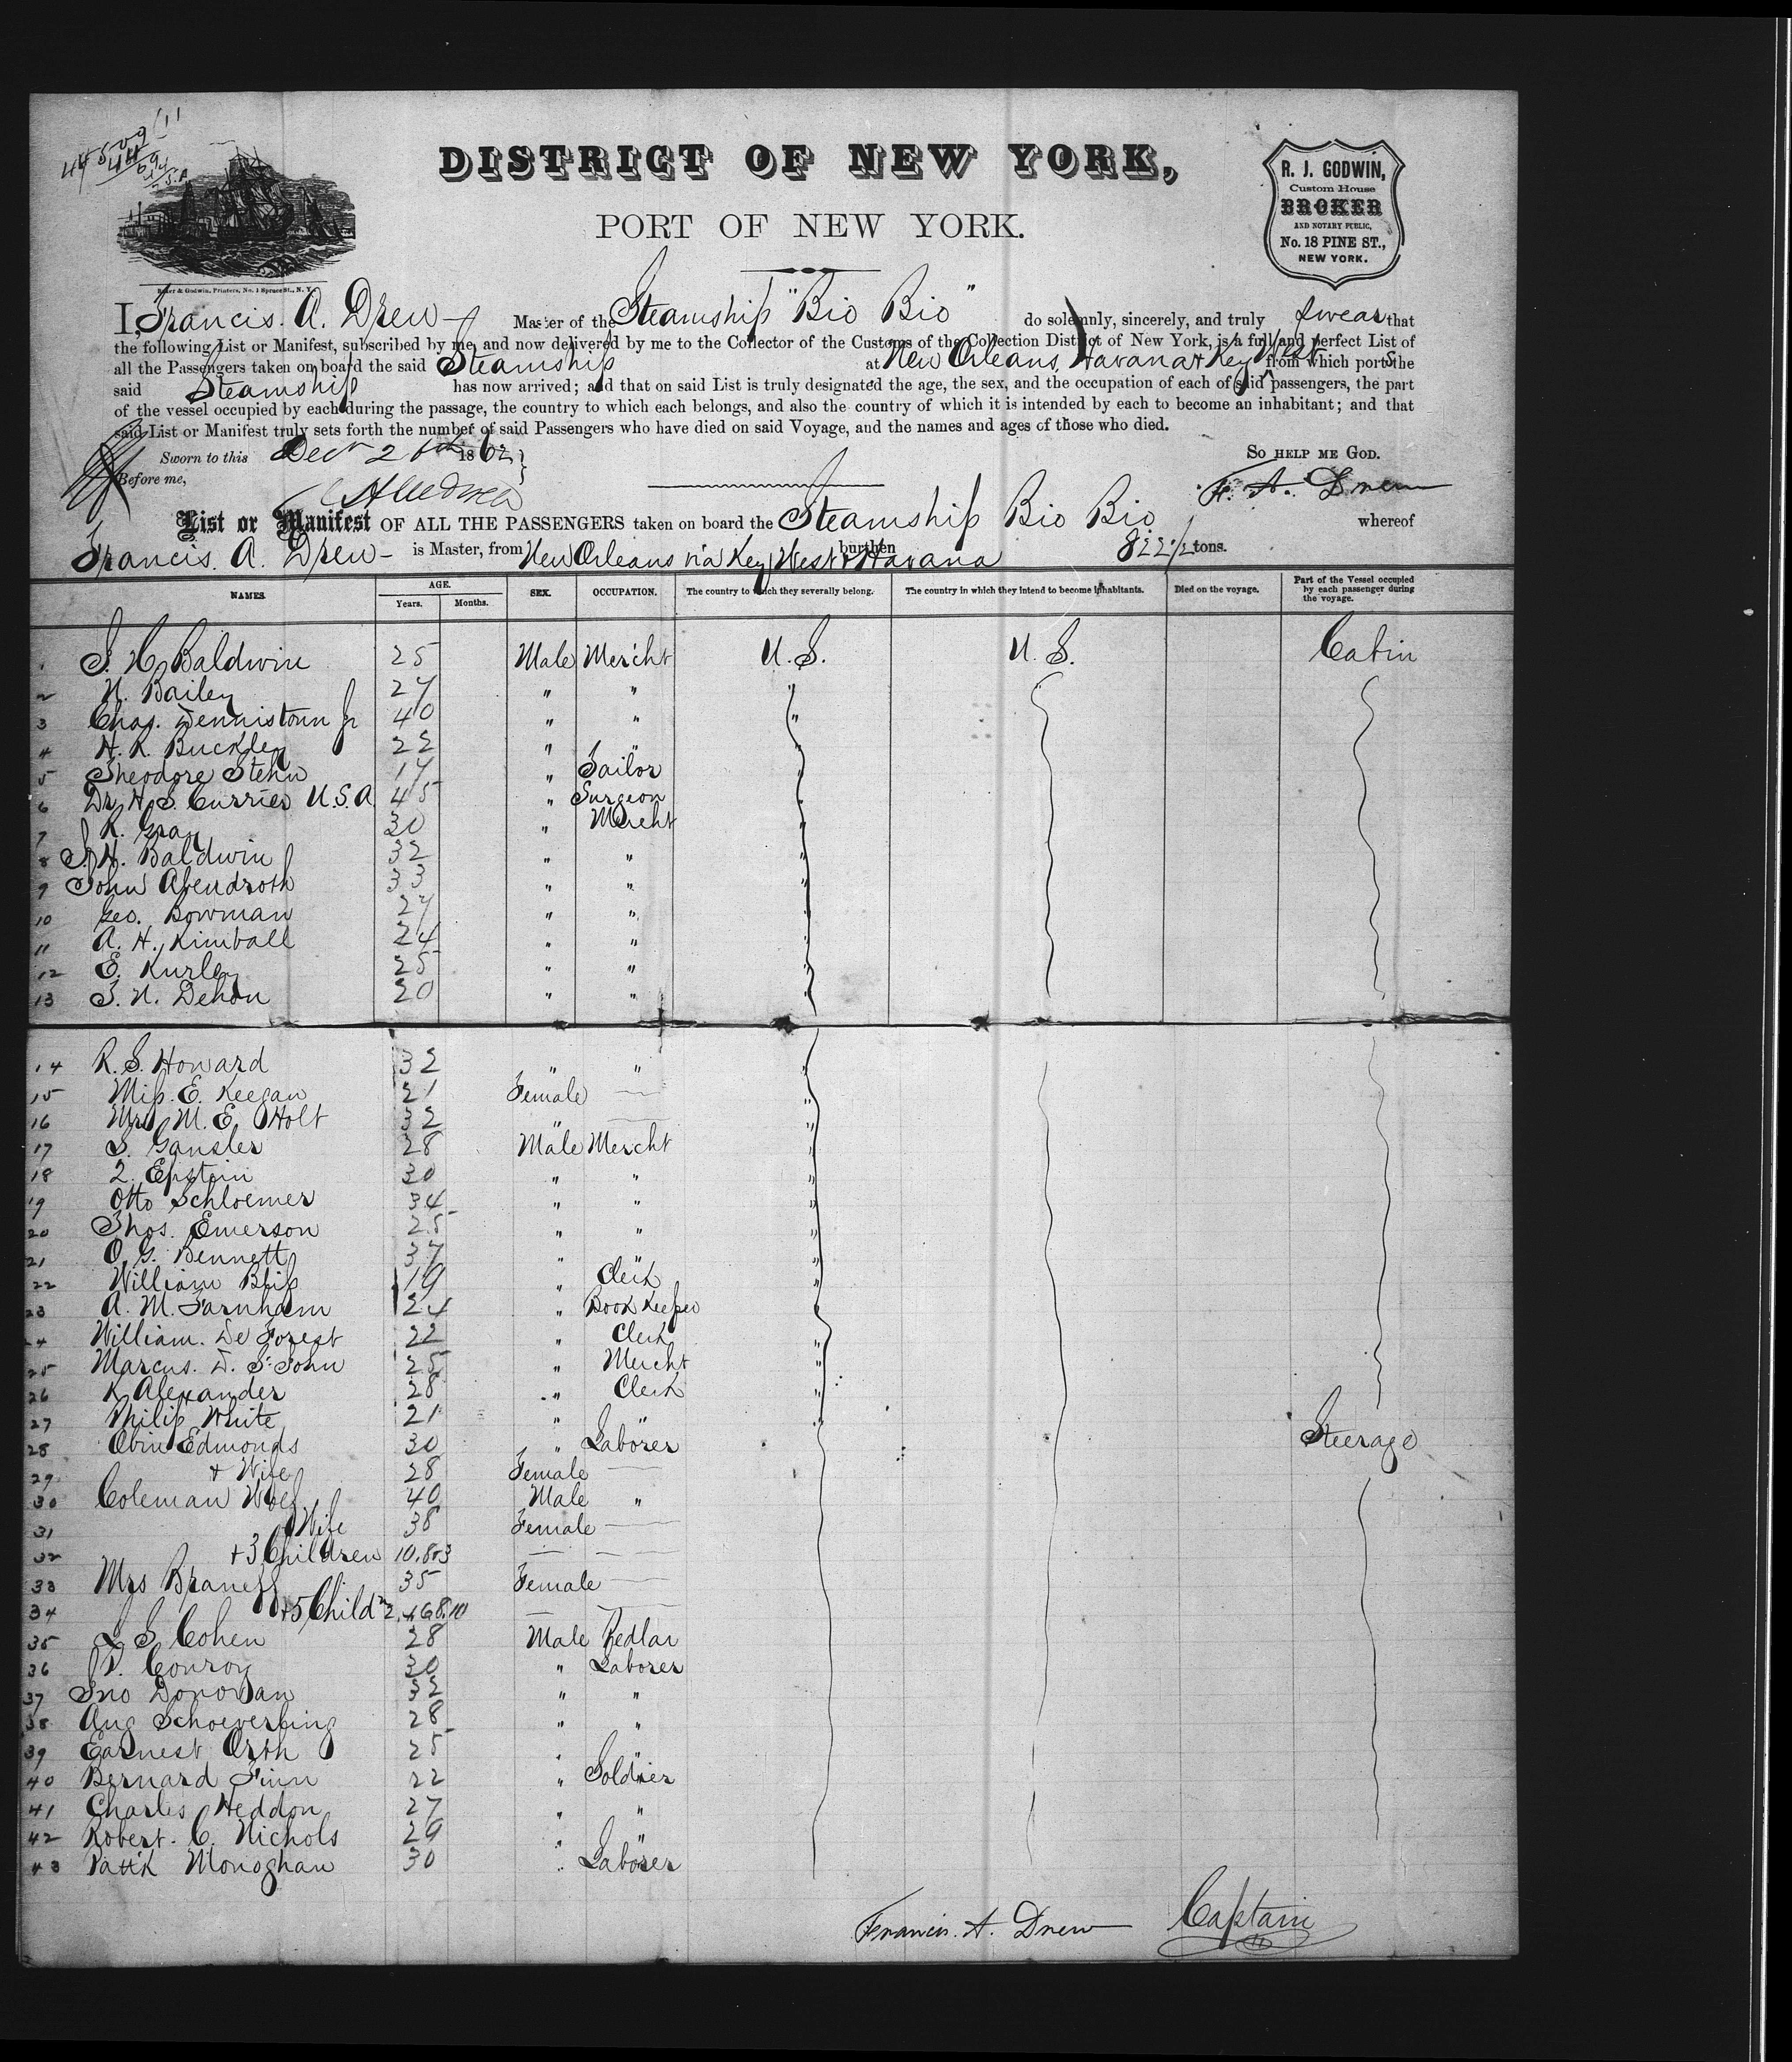 DISTRICT OF NEW YORK,
PORT OF NEW YORK.
R. J. GODWIN,
Custom House
BROKER
AND NOTARY PUBLIC,
No. 18 PINE ST.,
NEW YORK.
Baker & Godwin, Printers, No. 1 Spruce St., N. Y.
I, Francis. A. Drew Master of the Steamship "Bio Bio" do solemnly, sincerely, and truly swear that
the following List or Manifest, subscribed by me, and now delivered by me to the Collector of the Customs of the Collection District of New York, is a full and perfect List of
all the Passengers taken on board the said Steamship at New Orleans, Havana & Key West from which ports the
said Steamship has now arrived; and that on said List is truly designated the age, the sex, and the occupation of each of said passengers, the part
of the vessel occupied by each during the passage, the country to which each belongs, and also the country of which it is intended by each to become an inhabitant; and that
said List or Manifest truly sets forth the number of said Passengers who have died on said Voyage, and the names and ages of those who died.
Sworn to this Decr 26th 1862 SO HELP ME GOD.
Before me, F. A. Drew
List or Manifest OF ALL THE PASSENGERS taken on board the Steamship Bio Bio whereof
Francis. A. Drew - is Master, from New Orleans via Key West & Havana burthen 822 1/2 tons.
NAMES. AGE. Years. Months. SEX. OCCUPATION. The country to which they severally belong. The country in which they intend to become inhabitants. Died on the voyage. Part of the Vessel occupied by each passenger during the voyage.
1 S. H. Baldwin 25 Male Mercht U.S. U.S. Cabin
2 N. Bailey 27 " " "
3 Chas. Dennistoun Jr 40 " " "
4 H. R. Buckley 22 " " "
5 Theodore Stehn 17 " Sailor "
6 Dr H. S. Currier U.S.A 45 " Surgeon "
7 R. Gray 30 " Mercht "
8 S. H. Baldwin 32 " " "
9 John Abendroth 33 " " "
10 Geo. Bowman 27 " " "
11 A. H. Kimball 24 " " "
12 E. Kurley 25 " " "
13 S. N. Dehon 20 " " "
14 R. S. Howard 32 " "
15 Miss. E. Keegan 21 Female — "
16 Mrs M. E. Holt 32 " — "
17 S. Gansler 28 Male Mercht "
18 L. Epstein 30 " " "
19 Otto Schloemer 34 " " "
20 Thos. Emerson 25 " " "
21 O. G. Bennett 37 " " "
22 William Bliss 19 " Clerk "
23 A. M. Farnham 24 " Book Keeper
24 William. De Forest 22 " Clerk "
25 Marcus. D. St John 25 " Mercht "
26 K Alexander 28 " Clerk "
27 Philip White 21 " " "
28 Edmonds 30 " Laborer Steerage
29 + Wife 28 Female —
30 Coleman Wolf 40 Male "
31 " Wife 38 Female —
32 + 3 Children 10.8&3 — —
33 Mrs 35 Female —
34 +5 Childn 2.4.6.8.10 — —
35 L S Cohen 28 Male Pedlar
36 P. Conroy 30 " Laborer
37 Jno Donovan 32 " "
38 Aug Schoeverling 28 " "
39 Earnest Orth 25 " "
40 Bernard Finn 22 " Soldier
41 Charles Heddon 27 " "
42 Robert. C. Nichols 29 " "
43 Patt'k Monoghan 30 " Laborer
Francis. A. Drew Captain